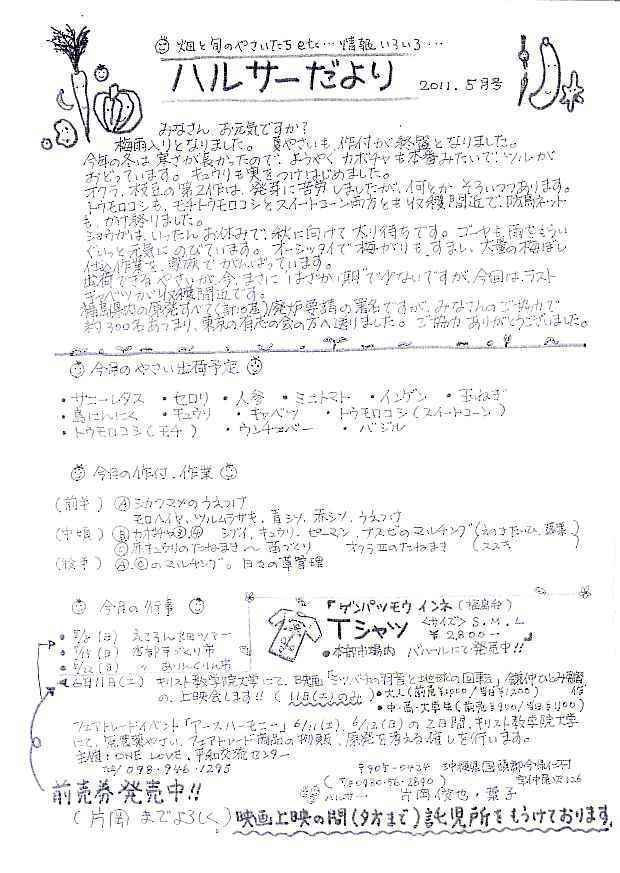 畑と旬のやさいたちetc…情報いろいろ…
ハルサーだより
2011.5月号
みなさん お元気ですか?
梅雨入りとなりました。夏やさいも、作付が終盤となりました。
今年の冬は寒さが長かったので、ようやくカボチャも本番みたいで、ツルが
おどっています。キュウリも実をつけはじめました。
オクラ、枝豆の第2作は、発芽に苦労しましたが、何とかそろいつつあります。
トウモロコシも、モチトウモロコシとスイートコーン両方とも収穫間近で、防鳥ネット
も、かけ終りました。
ショウガは、いったんお休みで、秋に向けて大り待ちです。ゴーヤも雨をもらい
ぐいっと元気にのびています。オーシッタイで梅がりも、すまし、大量の梅ぼし
仕込作業を、家族でがんばっています。
出荷できるやさいが、今、まさに"はざかい期"で少ないですが、今回は、ラスト
キャベツが収穫間近です。
福島県内の原発すべて(計10基)廃炉要請の署名ですが、みなさんのご協力で
約300名あつまり、東京の有志の会の方へ送りました。ご協力ありがとうございました。
今月のやさい出荷予定
・サニーレタス ・セロリ ・人参 ・ミニトマト ・インゲン ・玉ねぎ
・島にんにく ・キュウリ ・キャベツ ・トウモロコシ(スイートコーン)
・トウモロコシ(モチ) ・ウンチェバー ・バジル
今月の作付、作業
(前半) Ⓐシカクマメのうえつけ
モロヘイヤ、ツルムラサキ、青シソ、赤シソ、うえつけ
(中頃) Ⓑカボチャ③,④ シブイ、キュウリ、ピーマン、ナスビのマルチング
Ⓒ赤キュウリのたねまき〜苗づくり オクラⅡのたねまき
(後半) Ⓐ,Ⓒのマルチング。日々の草管理
今月の行事
『ゲンパツモウ インネ(福島発)
Tシャツ <サイズ> S.M.L
¥2,800-
・本部市場内 パハールにて発売中!!
・5/8(日)
・5/15(日)
・5/22(日)
・6月11日(土) キリスト教学院大にて、映画「ミツバチの羽音と地球の回転」鎌仲ひとみ
の、上映会します!!(11日(土)のみ)
・大人(前売¥1000/当日¥1,200)
・中・高・大学生(前売¥900/当日¥1100)
フェアトレードイベント「アースハーモニー」6/11(土)、6/12(日)の2日間、キリスト教学院大学
にて、フェアトレード商品の物販、原発を考える催しを行います。
主催:ONE LOVE、平和交流センター
Tel 098-946-1295
〒905-0424 沖縄県国頭郡今帰仁村
(Tel 0980-56-2890)
ハルサー 片岡俊也・葉子
前売券発売中!!
(片岡までよろしく)映画上映の間(夕方まで)託児所をもうけております。